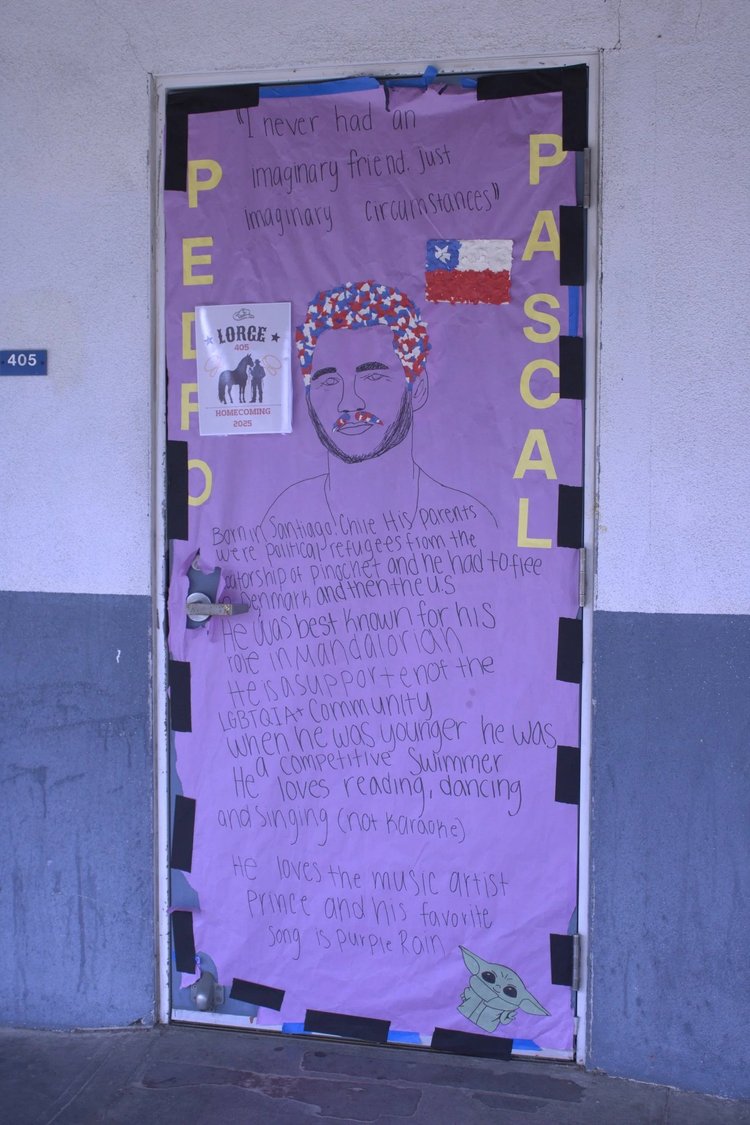 "I never had an
imaginary friend. just
imaginary circumstances"
PEDRO
PASCAL
405
LORGE
405
HOMECOMING
2025
Born in Santiago, Chile His parents
were political refugees from the
tatorship of Pinochet and he had to flee
Denmark and then the U.S
He was best known for his
role in Mandalorian
He is a supporte not the
LGBTQIA+ Community
when he was younger he was
a competitive Swimmer
He loves reading, dancing
and singing (not karaoke)
He loves the music artist
Prince and his favorite
song is Purple Rain